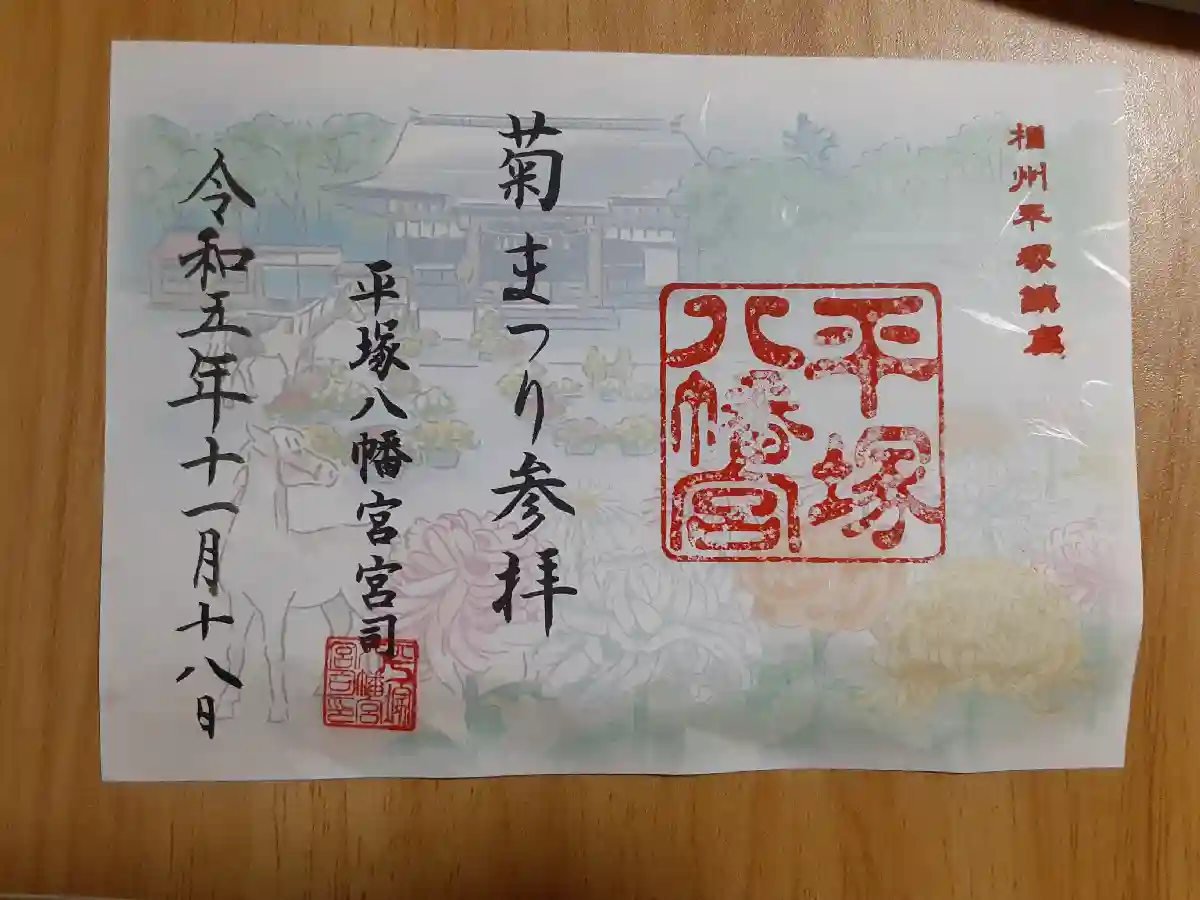 相州平塚鎮座
平塚
八幡宮
菊まつり参拝
平塚八幡宮宮司
平塚
八幡宮
宮司印
令和五年十一月十八日